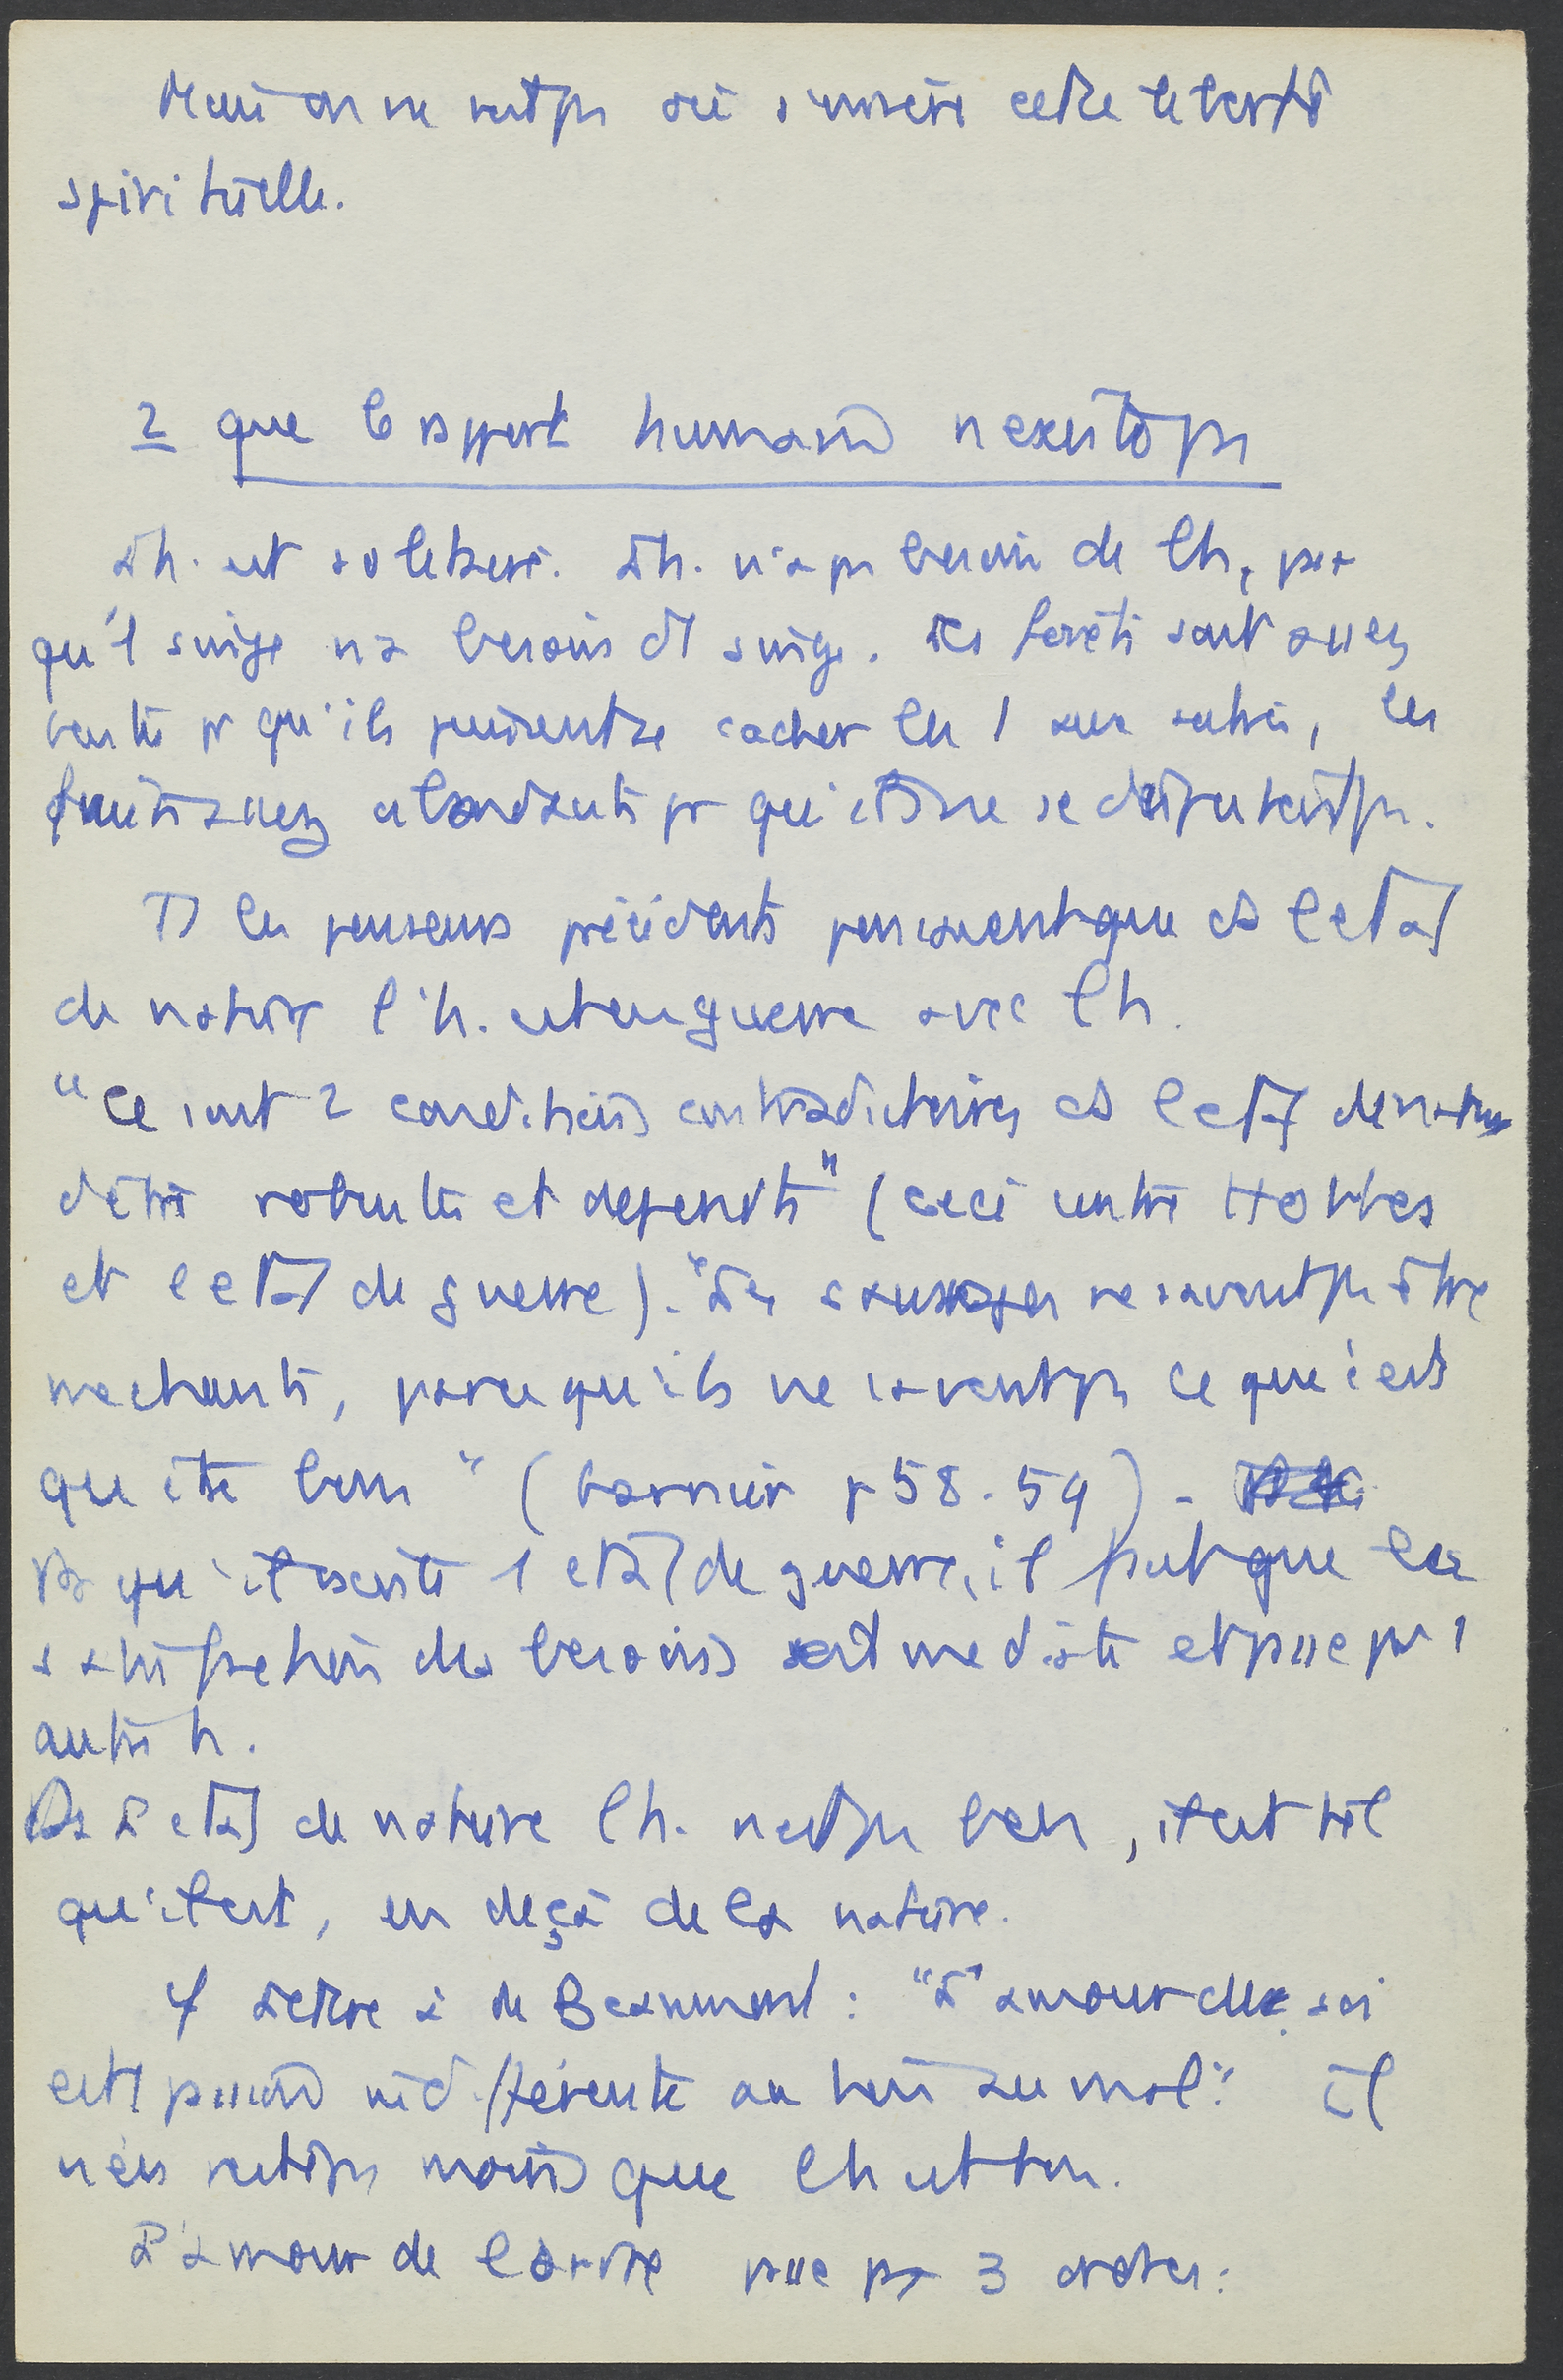 Mais on ne voit pas où s'insère cette liberté
spirituelle.
2 que le rapport humain n'existe pas
L'h. est solitaire. L'h. n'a pas besoin de l'h, pas
qu'1 singe n'a besoin d'1 singe. Les forêts sont assez
vastes pr qu'ils puissent se cacher les 1 aux autres, les
fruits assez abondants pr qu'ils ne se disputent pas.
Ts les penseurs précédents pensaient que ds l'état
de nature l'h. est en guerre avec l'h.
"Ce sont 2 conditions contradictoires ds l'état de nature
d'être robuste et dépendt" (ceci contre Hobbes
et l'état de guerre). "Les sauvages ne savent pas être
méchants, parce qu'ils ne savent pas ce que c'est
que être bon" (Garnier p 58-59) -
Pr qu'il existe 1 état de guerre, il faut que la
satisfaction des besoins soit médiate et passe par 1
autre h.
Ds l'état de nature l'h. n'est pas bon, il est tel
qu'il est, en deçà de la nature.
cf Lettre à de Beaumont : "L'amour de soi
est 1 passion indifférente au bien au mal". Il
n'en reste pas moins que l'h est bon.
L'amour de l'ordre passe par 3 stades :